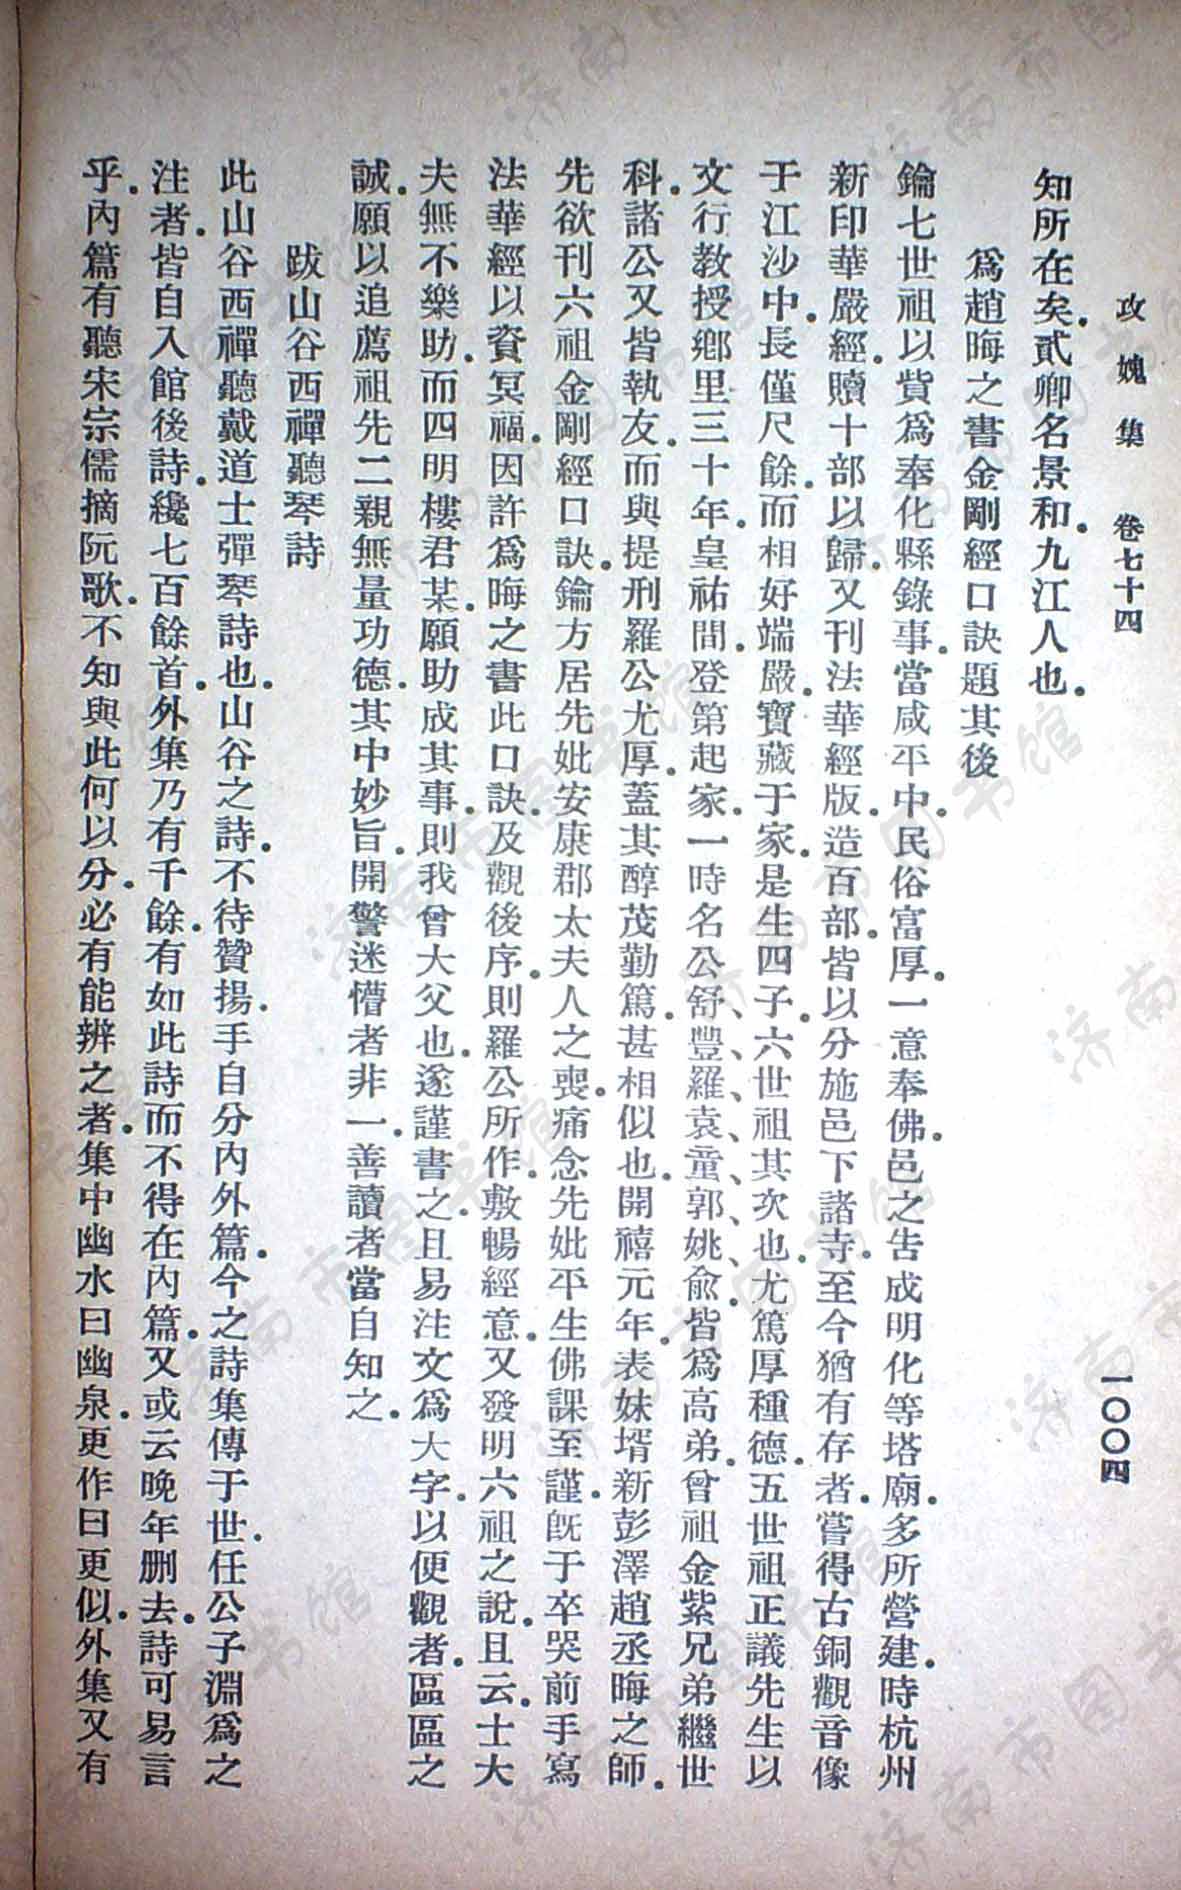 攻媿集 卷七十四 一〇〇四
知所在矣。貳卿名景和。九江人也。
爲趙晦之書金剛經口訣題其後
鑰七世祖以貲爲奉化縣錄事。當咸平中。民俗富厚。一意奉佛。邑之告成明化等塔廟。多所營建。時杭州
新印華嚴經。贖十部以歸。又刊法華經版。造百部。皆以分施邑下諸寺。至今猶有存者。嘗得古銅觀音像
于江沙中。長僅尺餘。而相好端嚴。寶藏于家。是生四子。六世祖其次也。尤篤厚種德。五世祖正議先生以
文行教授鄉里三十年。皇祐間。登第起家。一時名公舒、豐、羅、袁、童、郭、姚、俞。皆爲高弟。曾祖金紫兄弟繼世
科。諸公又皆執友。而與提刑羅公尤厚。蓋其醇茂勤篤。甚相似也。開禧元年。表妹壻新彭澤趙丞晦之師
先欲刊六祖金剛經口訣。鑰方居先妣安康郡太夫人之喪。痛念先妣平生佛課至謹。旣于卒哭前手寫
法華經以資冥福。因許爲晦之書此口訣。及觀後序。則羅公所作。敷暢經意。又發明六祖之說。且云。士大
夫無不樂助。而四明樓君某。願助成其事。則我曾大父也。遂謹書之。且易注文爲大字。以便觀者。區區之
誠。願以追薦祖先二親無量功德。其中妙旨。開警迷懵者非一。善讀者當自知之。
跋山谷西禪聽琴詩
此山谷西禪聽戴道士彈琴詩也。山谷之詩。不待贊揚。手自分內外篇。今之詩集傳于世。任公子淵爲之
注者。皆自入館後詩。纔七百餘首。外集乃有千餘。有如此詩而不得在內篇。又或云晚年删去。詩可易言
乎。內篇有聽宋宗儒摘阮歌。不知與此何以分。必有能辨之者。集中幽水曰幽泉。更作曰更似。外集又有